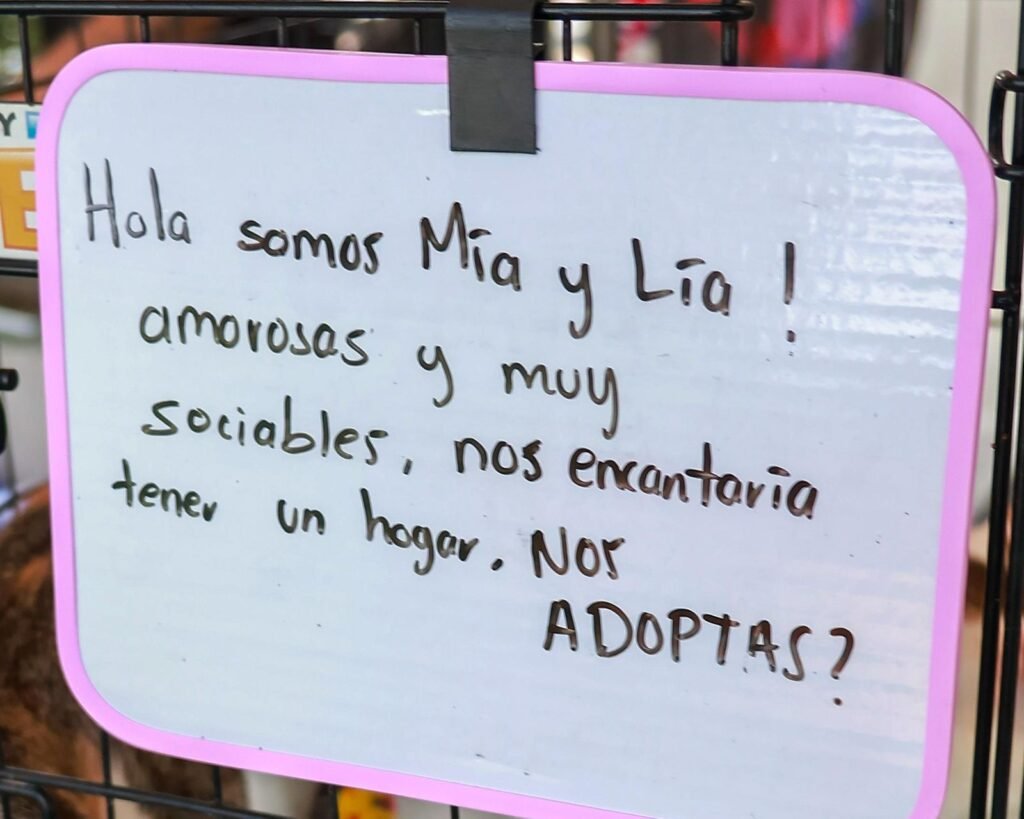 Y
E
Hola somos Mía y Lía !
amorosas y muy
sociables, nos encantaría
tener un hogar. Nos
ADOPTAS?